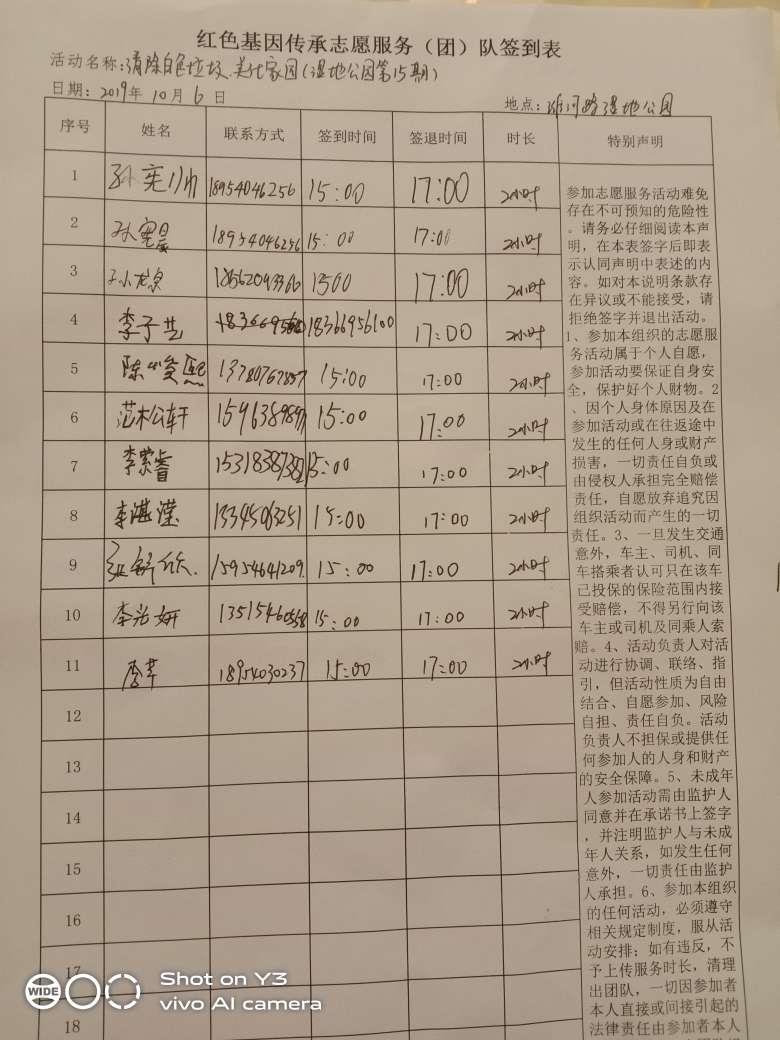 红色基因传承志愿服务（团）队签到表
活动名称：清除白色垃圾、美化家园（湿地公园第15期）
日期：2019年10月6日 地点：湿地公园
序号 姓名 联系方式 签到时间 签退时间 时长 特别声明
1 18954046256 15:00 17:00 2小时
2 18954046256 15:00 17:00 2小时
3 1500 17:00 2小时
4 李子艺 18366956100 17:00 2小时
5 陈 15:00 17:00 2小时
6 范松轩 15:00 17:00 2小时
7 李萦睿 15318387382 15:00 17:00 2小时
8 李湛滢 13345063251 15:00 17:00 2小时
9 15954641209 15:00 17:00 2小时
10 李 妍 15:00 17:00 2小时
11 18954030237 15:00 17:00 2小时
12
13
14
15
16
17
18
参加志愿服务活动难免
存在不可预知的危险性
。请务必仔细阅读本声
明，在本表签字后即表
示认同声明中表述的内
容。如对本说明条款存
在异议或不能接受，请
拒绝签字并退出活动。
1、参加本组织的志愿服
务活动属于个人自愿，
参加活动要保证自身安
全，保护好个人财物。2
、因个人身体原因及在
参加活动或在往返途中
发生的任何人身或财产
损害，一切责任自负或
由侵权人承担完全赔偿
责任，自愿放弃追究因
组织活动而产生的一切
责任。3、一旦发生交通
意外，车主、司机、同
车搭乘者认可只在该车
已投保的保险范围内接
受赔偿，不得另行向该
车主或司机及同乘人索
赔。4、活动负责人对活
动进行协调、联络、指
引，但活动性质为自由
结合、自愿参加、风险
自担、责任自负。活动
负责人不担保或提供任
何参加人的人身和财产
的安全保障。5、未成年
人参加活动需由监护人
同意并在承诺书上签字
，并注明监护人与未成
年人关系，如发生任何
意外，一切责任由监护
人承担。6、参加本组织
的任何活动，必须遵守
相关规定制度，服从活
动安排；如有违反，不
予上传服务时长，清理
出团队，一切因参加者
本人直接或间接引起的
法律责任由参加者本人
WIDE
Shot on Y3
vivo AI camera